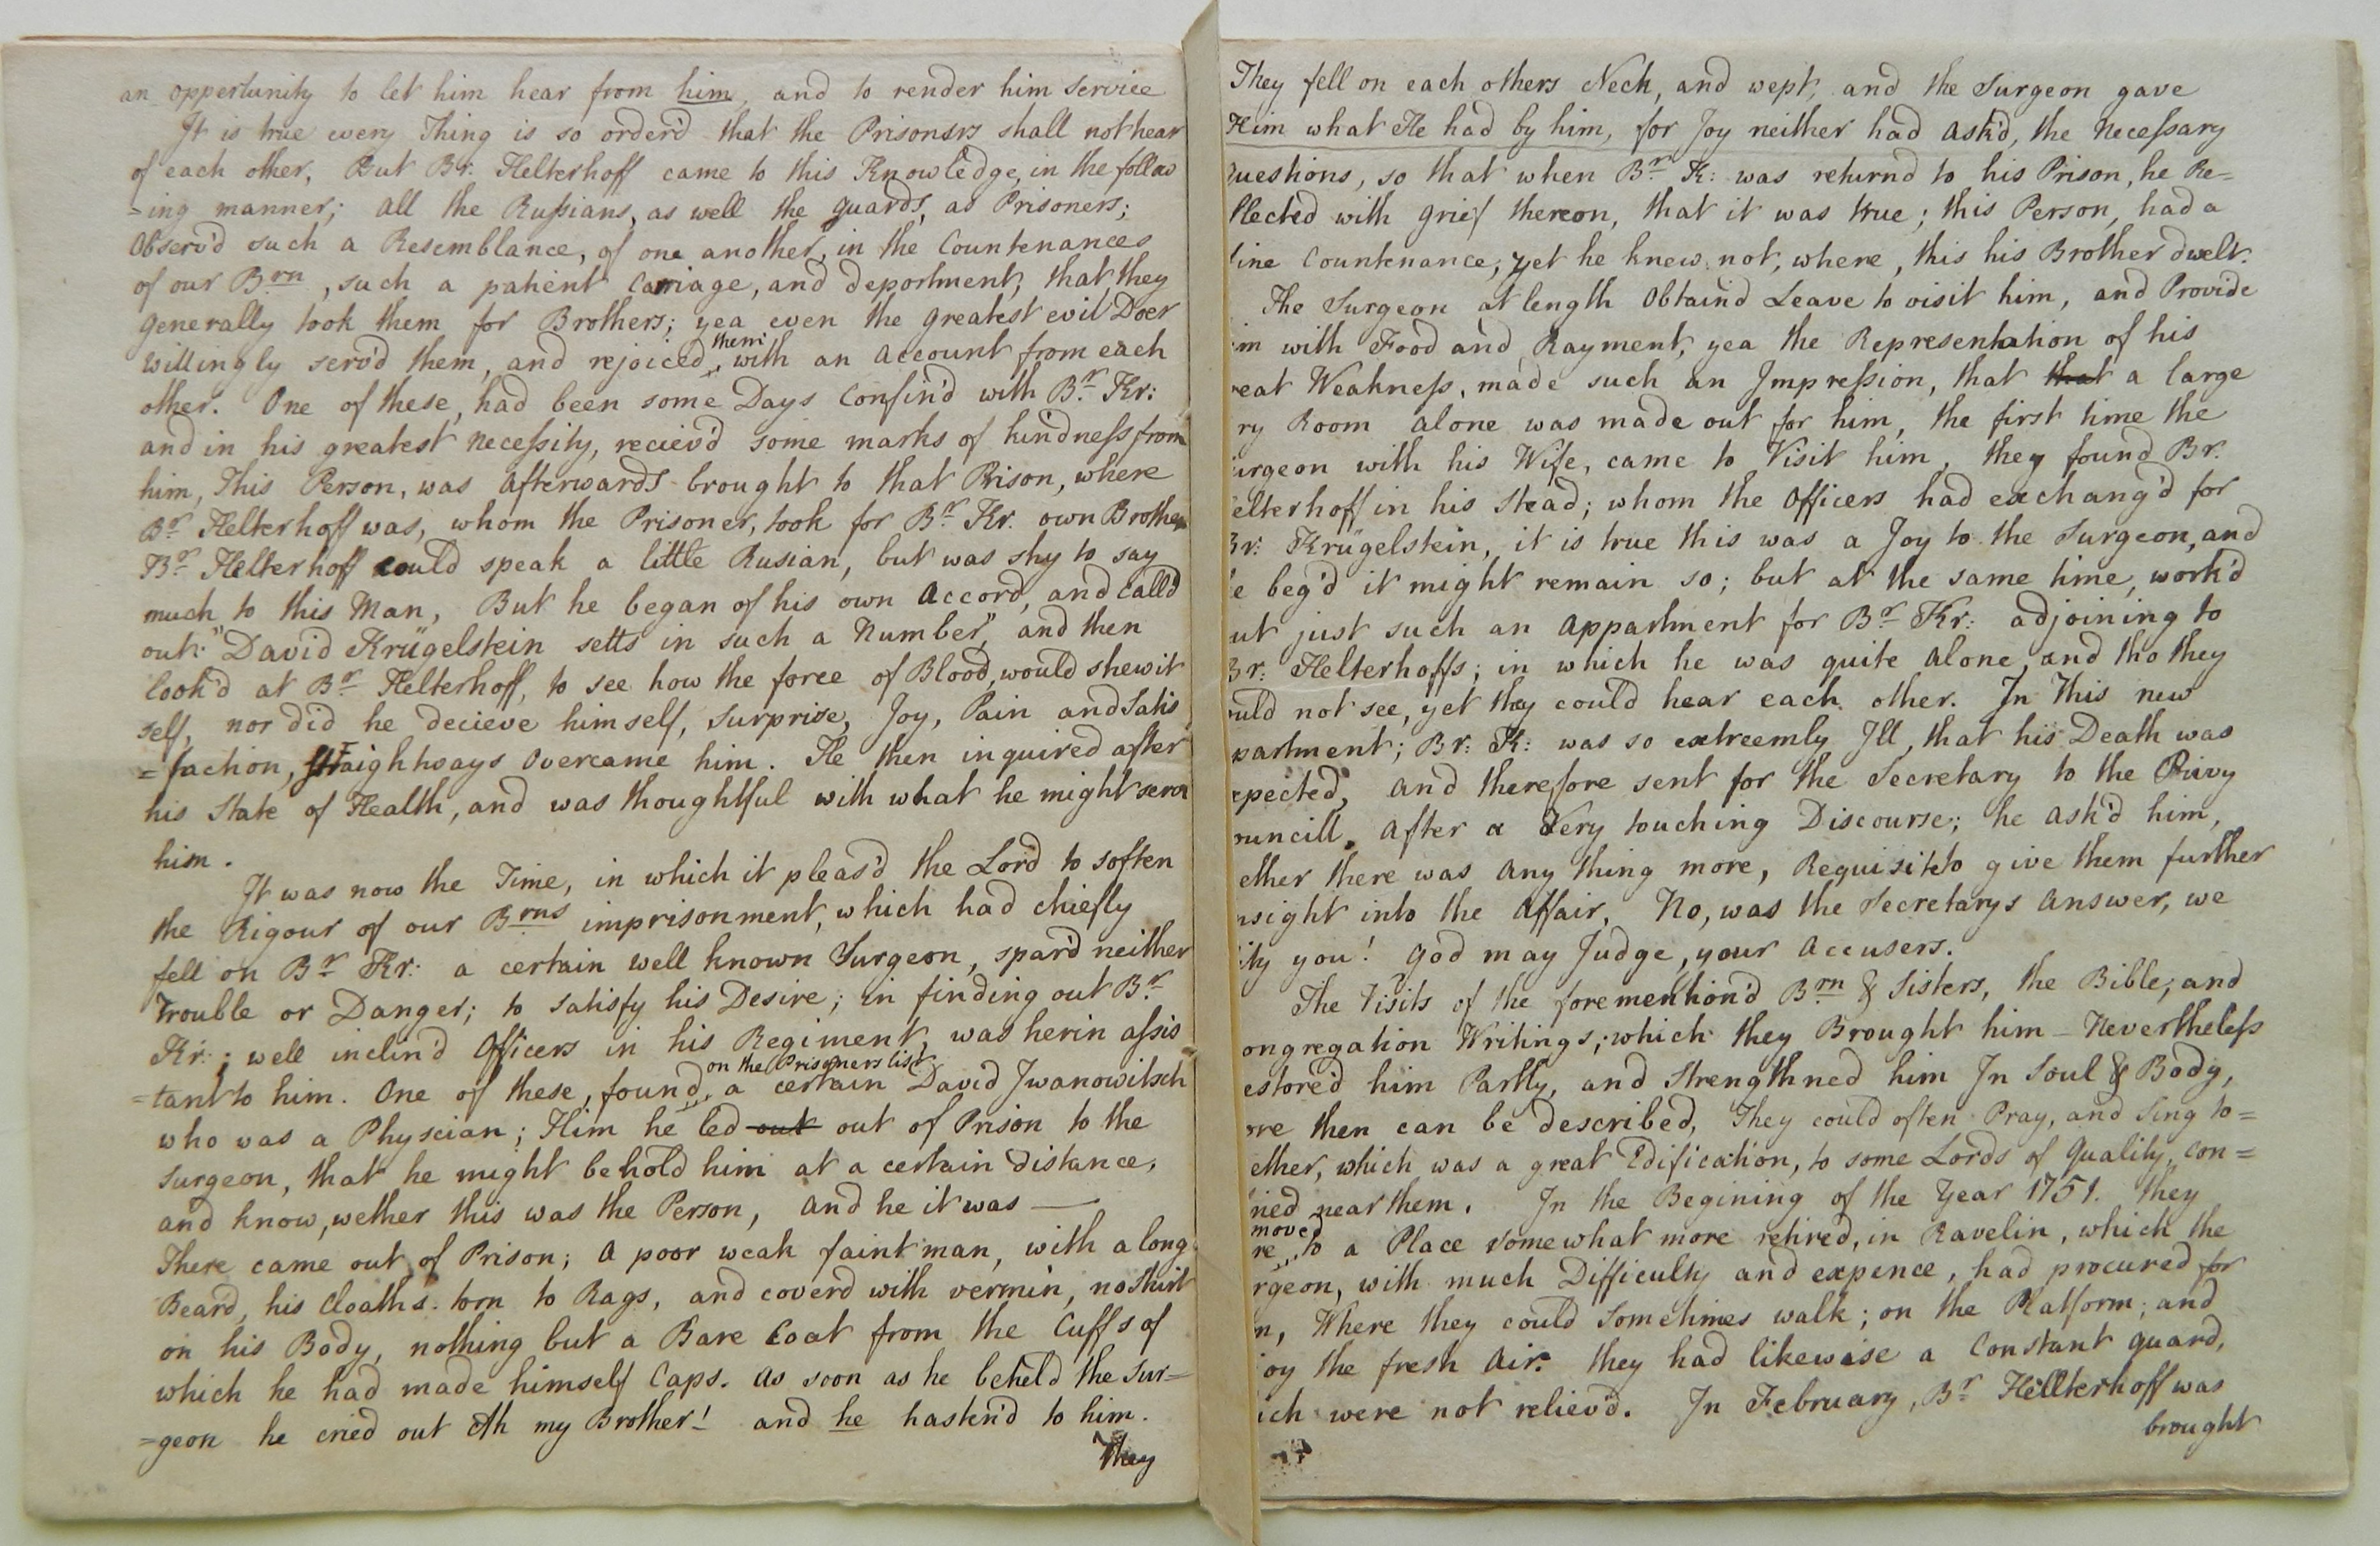 an opportunity to let him hear from him, and to render him service
It is true every Thing is so order'd that the Prisoners shall not hear
of each other, But Br: Helterhoff came to this Knowledge, in the follow
=ing manner; all the Russians, as well the guards, as Prisoners;
Observ'd such a Resemblance, of one another, in the Countenances
of our Brn, such a patient Carriage, and deportment, that they
generally took them for Brothers; yea even the greatest evil Doer
willingly serv'd them, and rejoiced them with an account from each
other. One of these, had been some Days Confin'd with Br. Kr:
and in his greatest necessity, reciev'd some marks of kindness from
him, This Person, was afterwards brought to that Prison, where
Br Helterhoff was, whom the Prisoner, took for Br Kr. own Brother
Br Helterhoff could speak a little Rusian, but was shy to say
much to this Man, But he began of his own accord, and call'd
out: "David Krügelstein setts in such a Number," and then
look'd at Br Helterhoff, to see how the force of Blood, would shew it
self, nor did he decieve himself, surprise, Joy, Pain and Satis
=faction, straightways overcame him. He then inquired after
his State of Health, and was thoughtful with what he might serve
him.
It was now the Time, in which it pleas'd the Lord to soften
the Rigour of our Brns imprisonment, which had chiefly
fell on Br Kr: a certain well known Surgeon, spar'd neither
trouble or Danger; to satisfy his Desire; in finding out Br
Kr:; well inclin'd Officers in his Regiment, was herin assis
=tant to him. One of these, found on the Prisoners list a certain David Jwanowitsch
who was a Physcian; Him he led out out of Prison to the
surgeon, that he might behold him at a certain distance,
and know, wether this was the Person, and he it was —
There came out of Prison; a poor weak faint man, with a long
Beard, his Cloaths torn to Rags, and coverd with vermin, no shirt
on his Body, nothing but a Bare Coat from the Cuffs of
which he had made himself Caps. as soon as he beheld the Sur=
=geon he cried out Ah my Brother! and he hasten'd to him.
They
They fell on each others Neck, and wept, and the Surgeon gave
Him what He had by him, for Joy neither had ask'd, the necessary
Questions, so that when Br K: was returnd to his Prison, he Re=
flected with grief thereon, that it was true; this Person, had a
fine Countenance, yet he knew not, where, this his Brother dwelt.
The Surgeon at length Obtain'd Leave to visit him, and Provide
im with Food and Rayment, yea the Representation of his
reat Weakness, made such an Impression, that that a large
ry Room alone was made out for him, the first time the
urgeon with his Wife, came to Visit him, they found Br.
elterhoff in his stead; whom the Officers had exchang'd for
Br: Krügelstein, it is true this was a Joy to the Surgeon, and
e beg'd it might remain so; but at the same time, work'd
ut just such an appartment for Br Kr: adjoining to
Br: Helterhoffs; in which he was quite alone, and tho they
ould not see, yet they could hear each other. In This new
partment; Br: K: was so extreemly Ill, that his Death was
xpected, and therefore sent for the Secretary to the Privy
ouncill. After a Very touching Discourse; he ask'd him,
ether there was any thing more, Requisite to give them further
nsight into the affair, No, was the Secretarys answer, we
ity you! God may Judge, your accusers.
The Visits of the foremention'd Brn & Sisters, the Bible, and
ongregation Writings; which they Brought him - Nevertheless
estore'd him Partly, and Strengthned him In Soul & Body,
ore then can be described, They could often Pray, and Sing to=
ether, which was a great Edification, to some Lords of Quality, con=
ined near them. In the Begining of the Year 1751. they
re moved to a Place somewhat more retired, in Ravelin, which the
rgeon, with much Difficulty and expence, had procured for
m, Where they could Sometimes walk; on the Platform; and
joy the fresh air. they had likewise a Constant guard,
ich were not reliev'd. In February, Br Hellterhoff was
brought